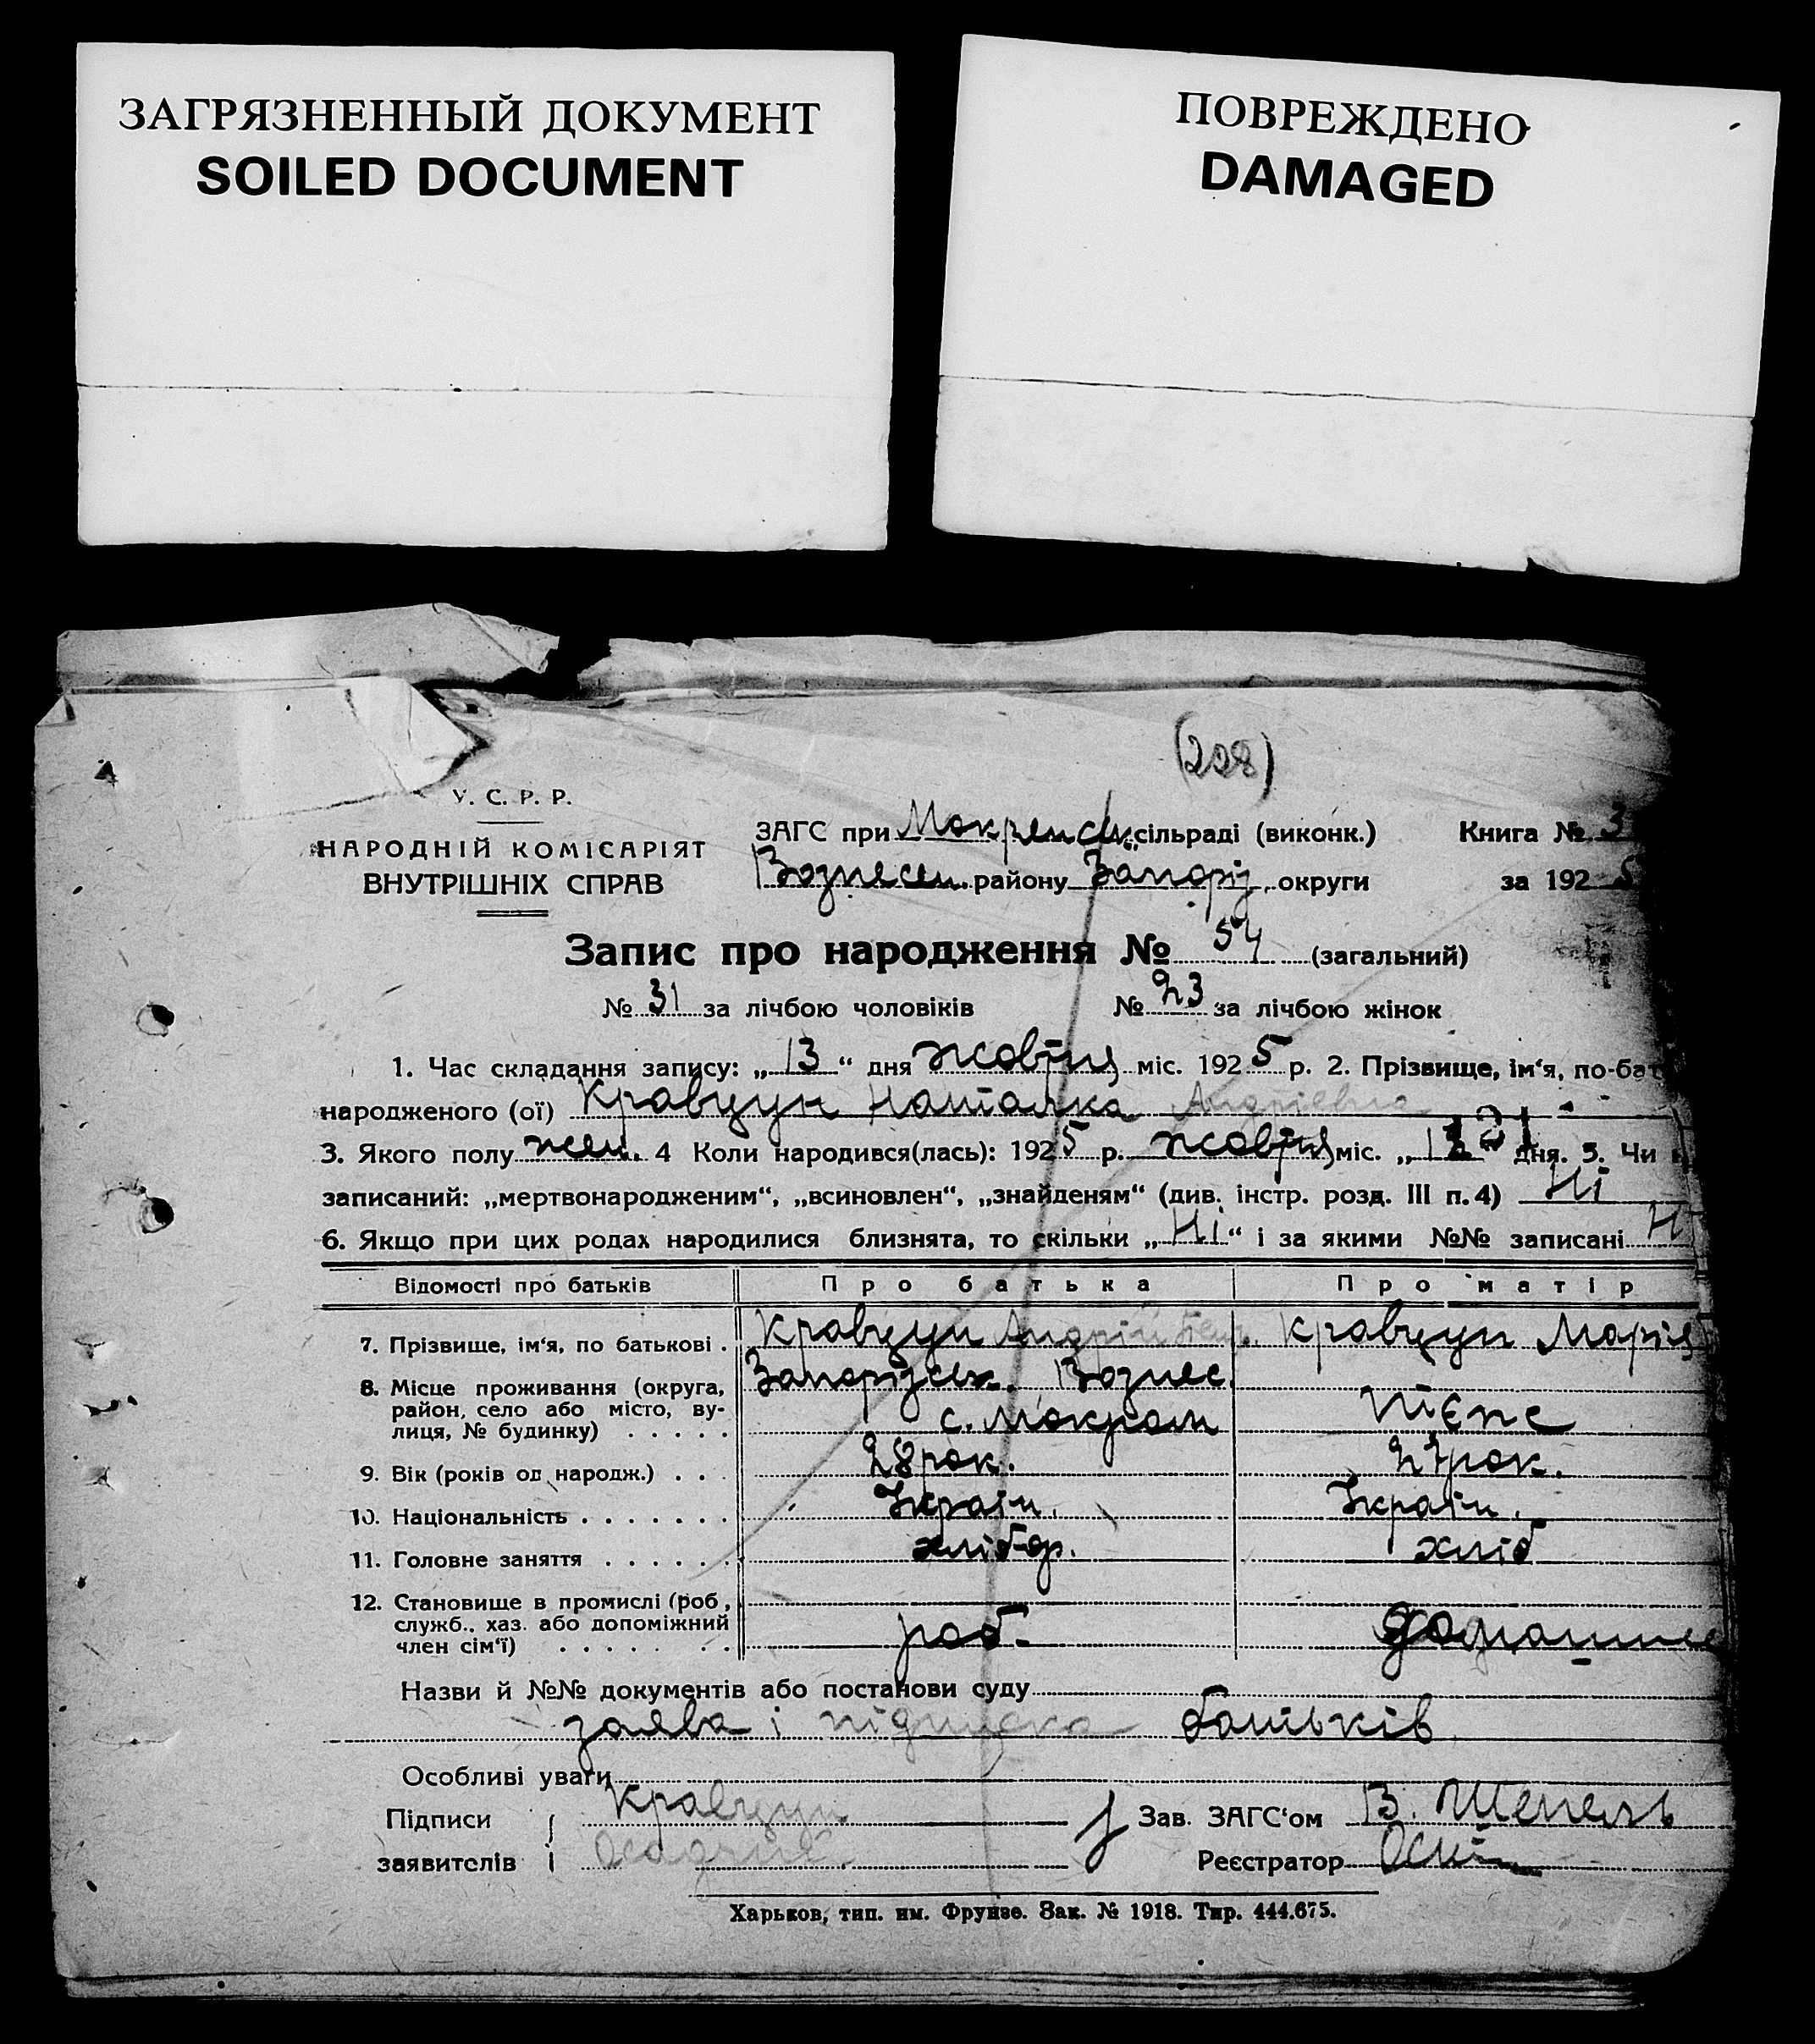 ЗАГРЯЗНЕННЫЙ ДОКУМЕНТ
SOILED DOCUMENT
ПОВРЕЖДЕНО
DAMAGED
(228)
У. С. Р. Р.
НАРОДНІЙ КОМІСАРІЯТ
ВНУТРІШНІХ СПРАВ
ЗАГС при Мокренськ. сільраді (виконк.) Книга № 3
Вознесен. району Запоріз. округи за 1925
Запис про народження № 54 (загальний)
№ 31 за лічбою чоловіків № 23 за лічбою жінок
1. Час складання запису: „13“ дня жовтня міс. 1925 р. 2. Прізвище, ім‘я, по-бат
народженого (ої) Кравцун Наталка Андріевна
3. Якого полу жен. 4 Коли народився(лась): 1925 р. жовтня міс. „ дня. 5. Чи
записаний: „мертвонародженим“, „всиновлен“, „знайденям“ (див. інстр. розд. III п. 4) Ні
6. Якщо при цих родах народилися близнята, то скільки „Ні“ і за якими №№ записані Н
Відомості про батьків Про батька Про матір
7. Прізвище, ім‘я, по батькові . Кравцун Андрій Кравцун Марія
8. Місце проживання (округа, Запорізськ. Вознес.
район, село або місто, ву- с. Мокром тієпс
лиця, № будинку) . . . . .
9. Вік (років од народж.) . . . 28 рок. 27 рок.
10. Національність . . . . . . . Україн. Україн.
11. Головне заняття . . . . . . хлібор. хліб
12. Становище в промислі (роб.,
служб., хаз. або допоміжний
член сім‘ї) . . . . . . . роб. домашне
Назви й №№ документів або постанови суду
заява і підписка батьків
Особливі уваги
Підписи Кравцун Зав. ЗАГС‘ом В. Шепель
заявителів Реєстратор
Харьков, тип. им. Фрунзе. Зак. № 1918. Тир. 444.675.